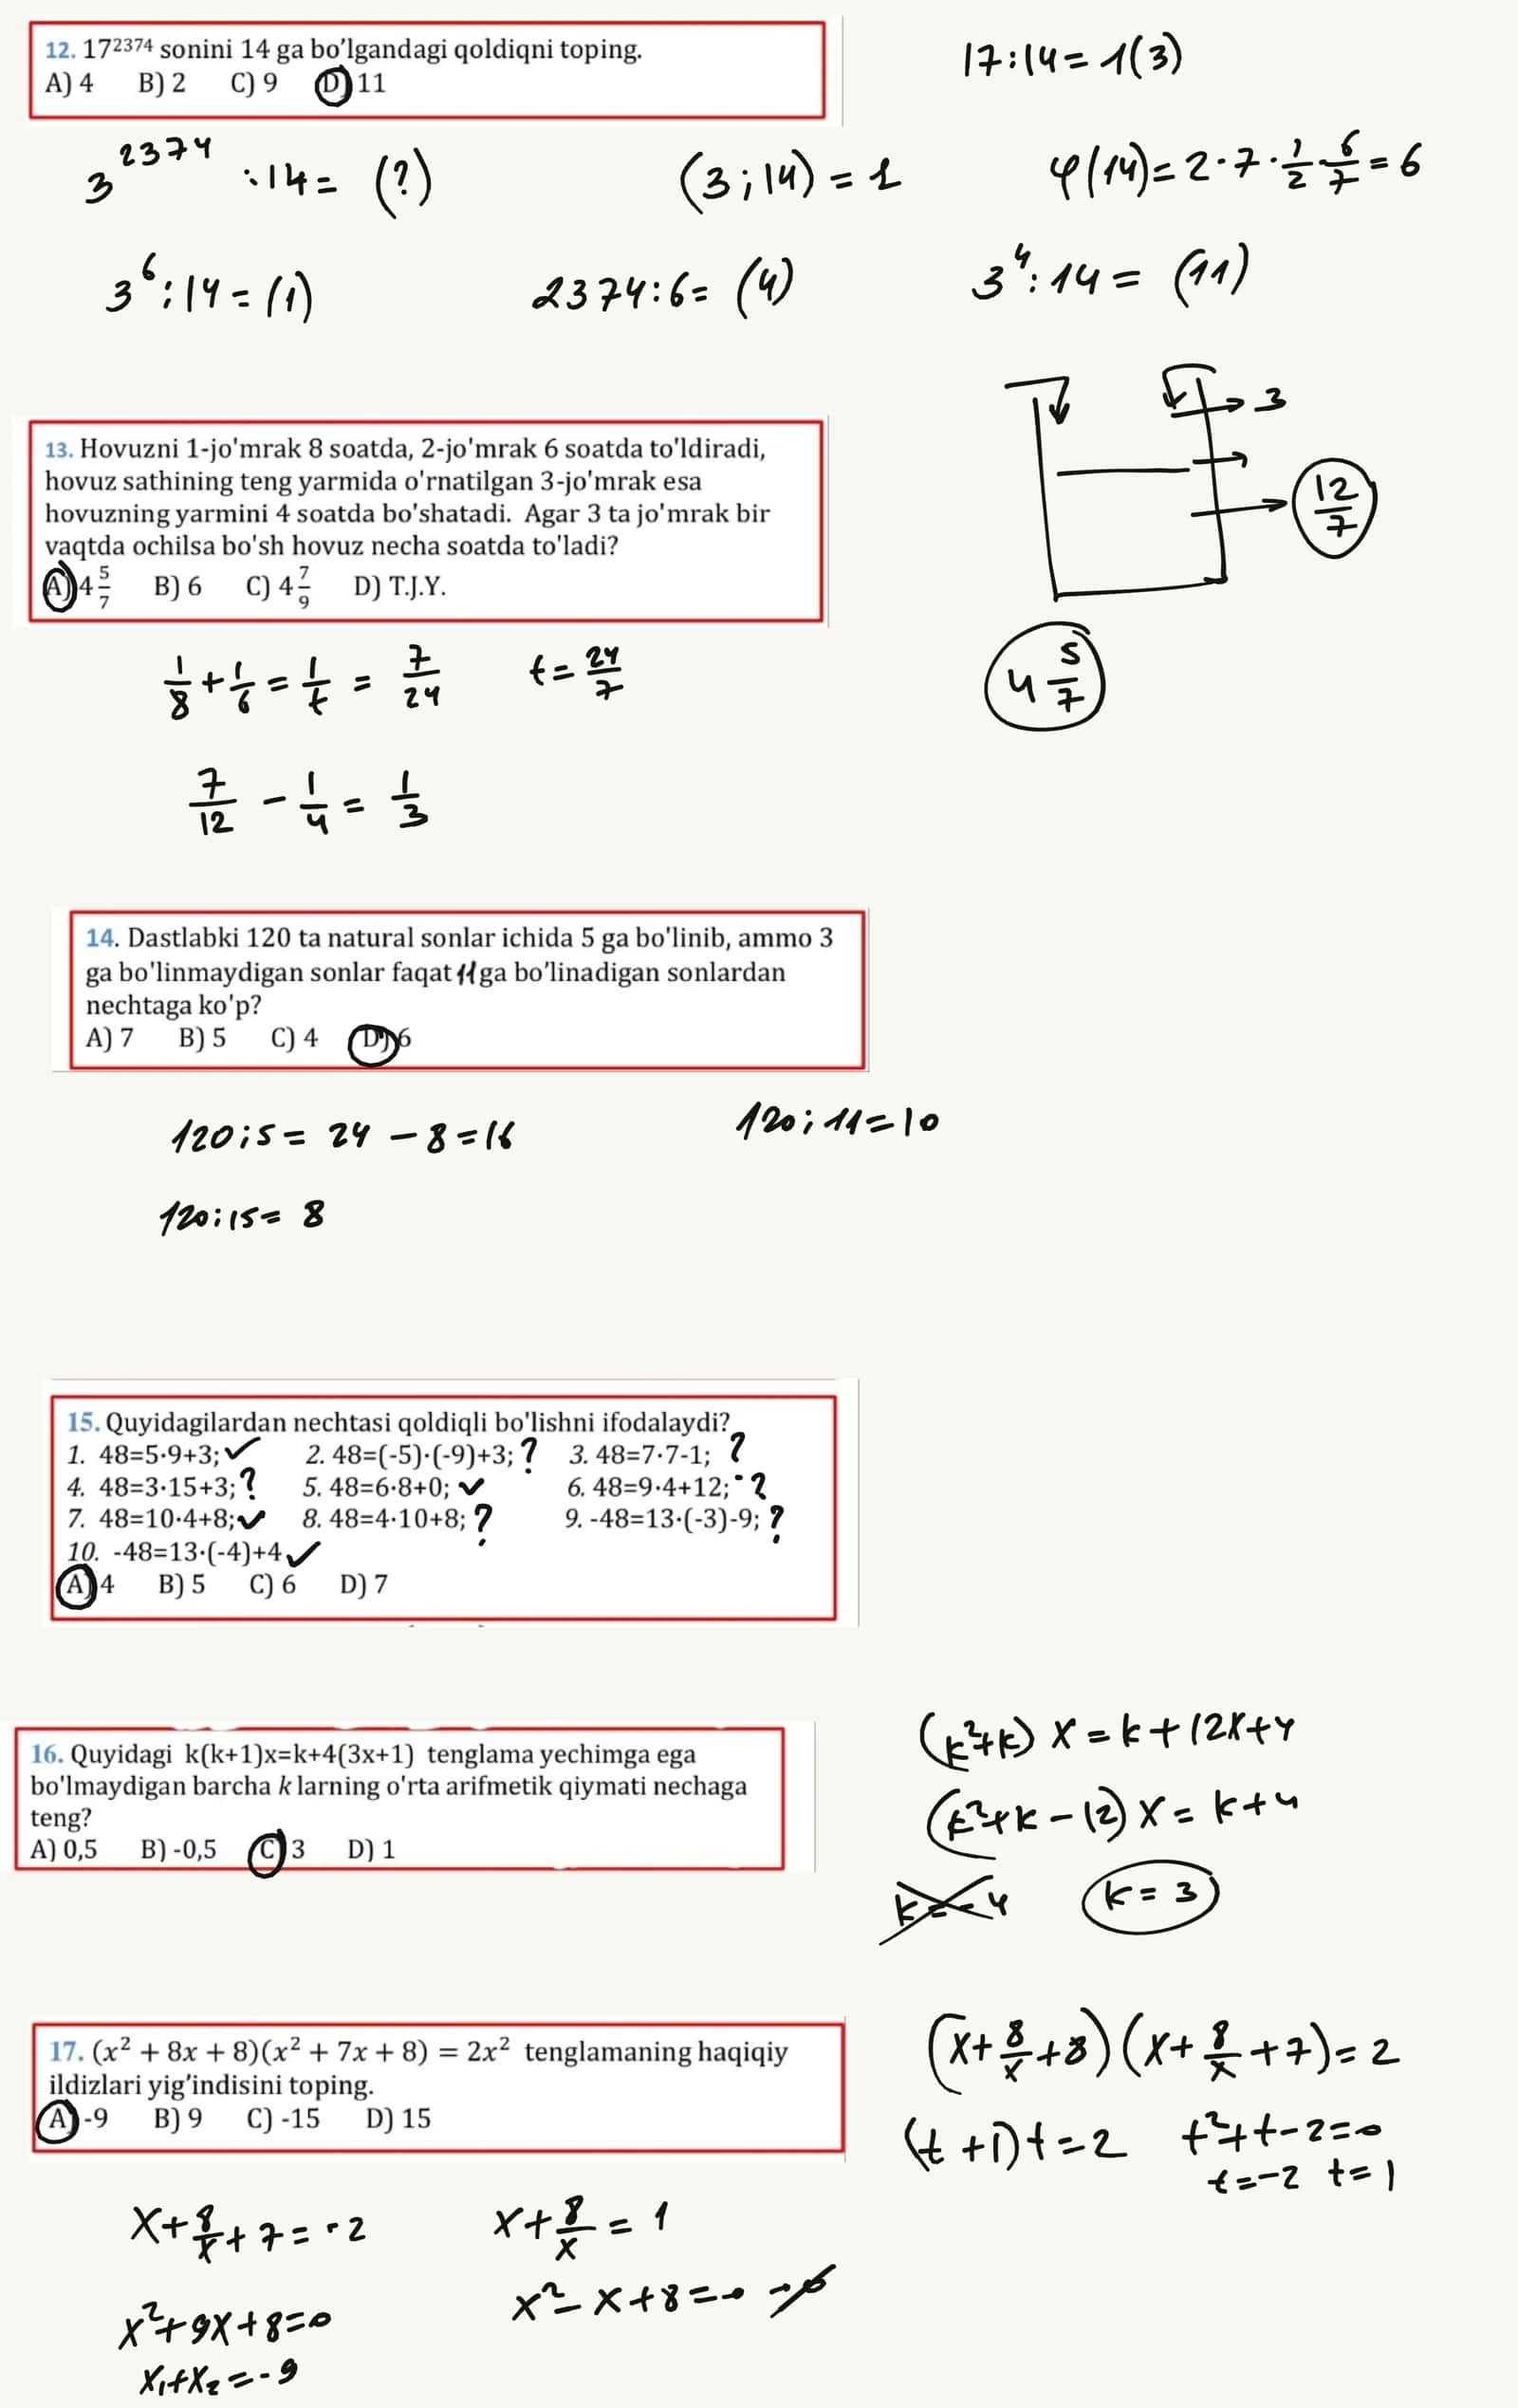 12. 17²³⁷⁴ sonini 14 ga bo’lgandagi qoldiqni toping.
A) 4 B) 2 C) 9 D) 11
17:14=1(3)
3²³⁷⁴ :14= (?) (3;14)=1 φ(14)=2·7·1/2·6/7=6
3⁶:14=(1) 2374:6=(4) 3⁴:14=(11)
13. Hovuzni 1-jo'mrak 8 soatda, 2-jo'mrak 6 soatda to'ldiradi,
hovuz sathining teng yarmida o'rnatilgan 3-jo'mrak esa
hovuzning yarmini 4 soatda bo'shatadi. Agar 3 ta jo'mrak bir
vaqtda ochilsa bo'sh hovuz necha soatda to'ladi?
A) 4 5/7 B) 6 C) 4 7/9 D) T.J.Y.
3
12/7
1/8+1/6=1/t=7/24 t=24/7
4 5/7
7/12-1/4=1/3
14. Dastlabki 120 ta natural sonlar ichida 5 ga bo'linib, ammo 3
ga bo'linmaydigan sonlar faqat 11 ga bo’linadigan sonlardan
nechtaga ko'p?
A) 7 B) 5 C) 4 D) 6
120:5=24-8=16 120:11=10
120:15=8
15. Quyidagilardan nechtasi qoldiqli bo'lishni ifodalaydi?
1. 48=5·9+3; ✓ 2. 48=(-5)·(-9)+3; ? 3. 48=7·7-1; ?
4. 48=3·15+3; ? 5. 48=6·8+0; ✓ 6. 48=9·4+12; ?
7. 48=10·4+8; ✓ 8. 48=4·10+8; ? 9. -48=13·(-3)-9; ?
10. -48=13·(-4)+4 ✓
A) 4 B) 5 C) 6 D) 7
16. Quyidagi k(k+1)x=k+4(3x+1) tenglama yechimga ega
bo'lmaydigan barcha k larning o'rta arifmetik qiymati nechaga
teng?
A) 0,5 B) -0,5 C) 3 D) 1
(k²+k)x=k+12x+4
(k²+k-12)x=k+4
k=-4 k=3
17. (x² + 8x + 8)(x² + 7x + 8) = 2x² tenglamaning haqiqiy
ildizlari yig’indisini toping.
A) -9 B) 9 C) -15 D) 15
(x+8/x+8)(x+8/x+7)=2
(t+1)t=2 t²+t-2=0
t=-2 t=1
x+8/x+7=-2 x+8/x=1
x²+9x+8=0 x²-x+8=0 →∅
x₁+x₂=-9